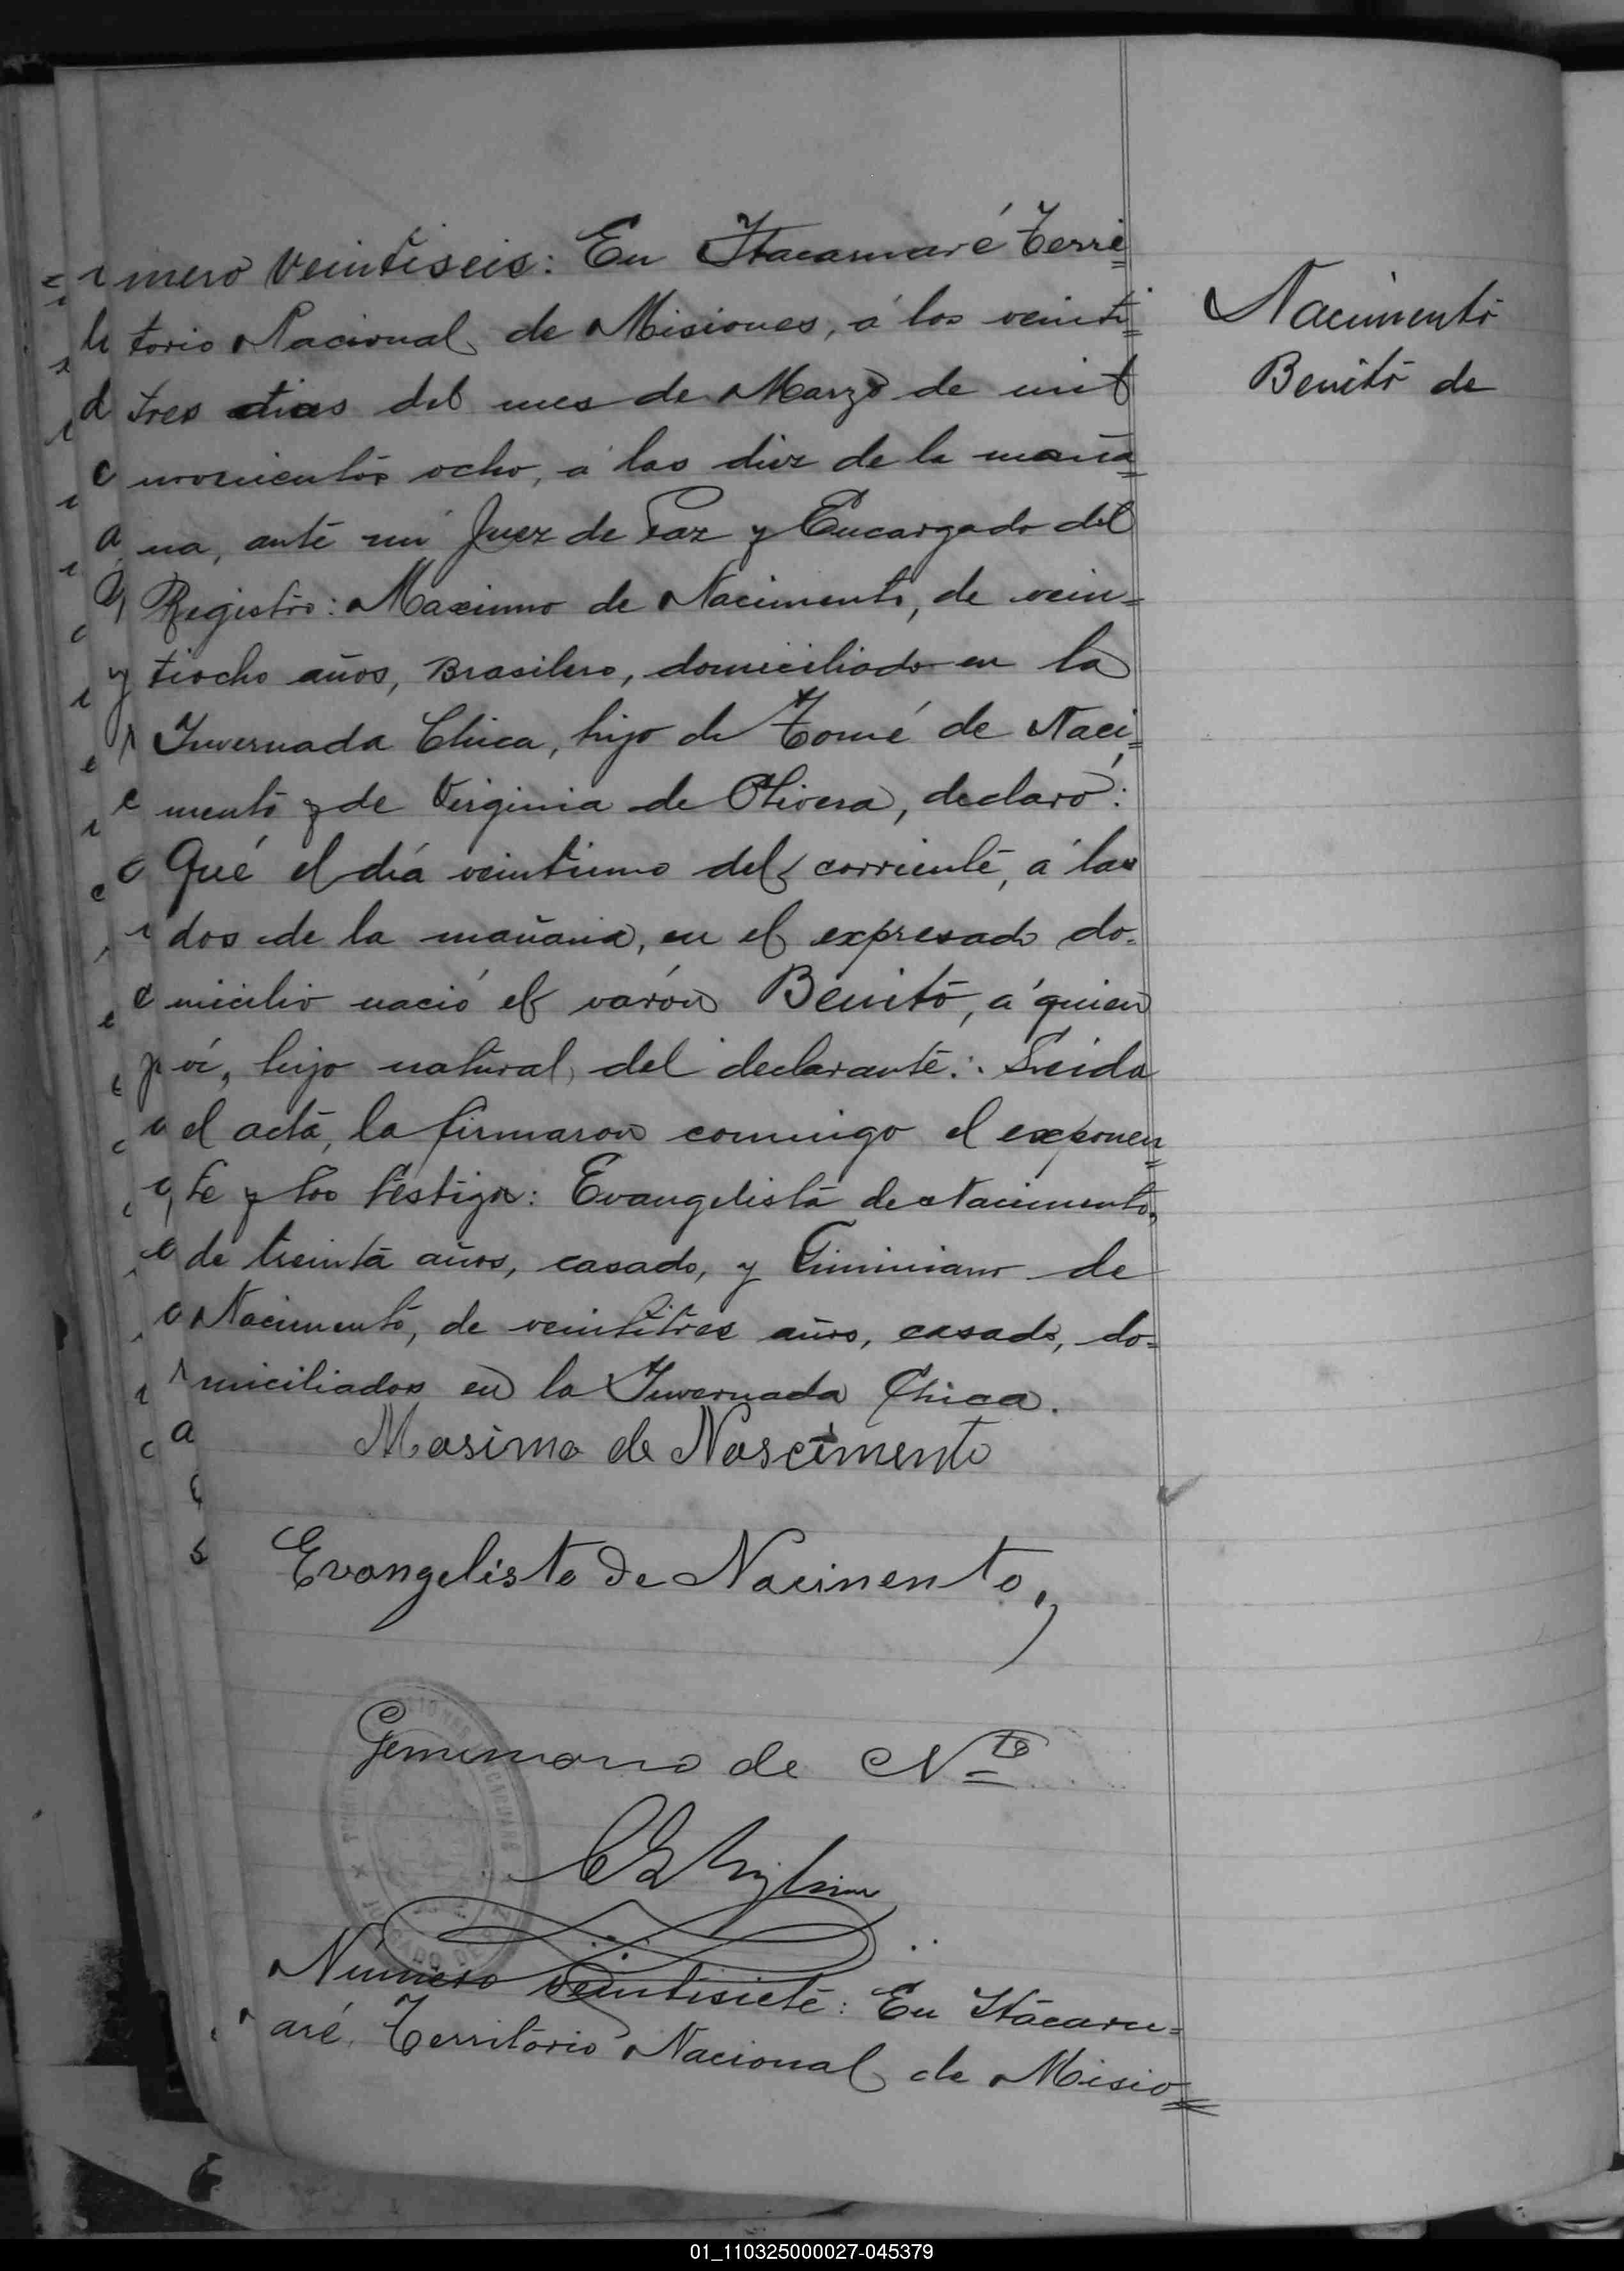 mero veintiseis: En Itacaruaré Terri=
torio Nacional de Misiones, a los veinti=
tres dias del mes de Marzo de mil
novecientos ocho, a las diez de la maña=
na, ante mi Juez de Paz y Encargado del
Registro: Maximo de Nacimento, de vein=
tiocho años, Brasilero, domiciliado en la
Invernada Chica, hijo de Tomé de Naci=
mento y de Virginia de Olivera, declaró:
Qué el día veintiuno del corriente, a las
dos de la mañana, en el expresado do=
micilio nació el varón Benito, a quien
vi, hijo natural del declarante.: Leida
el acta, la firmaron conmigo el exponen=
te y los testigos: Evangelista de Nacimento,
de treinta años, casado, y Giminiano de
Nacimento, de veintitres años, casado, do=
miciliados en la Invernada Chica.
Nacimento
Benito de
Masimo de Nascimento
Evangelista de Nacimento,
Geminiano de Nto
Número veintisiete: En Itacaru=
aré Territorio Nacional de Misio=
01_110325000027-045379